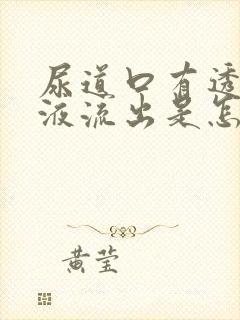 尿道口有透
液流出是怎
黄莹